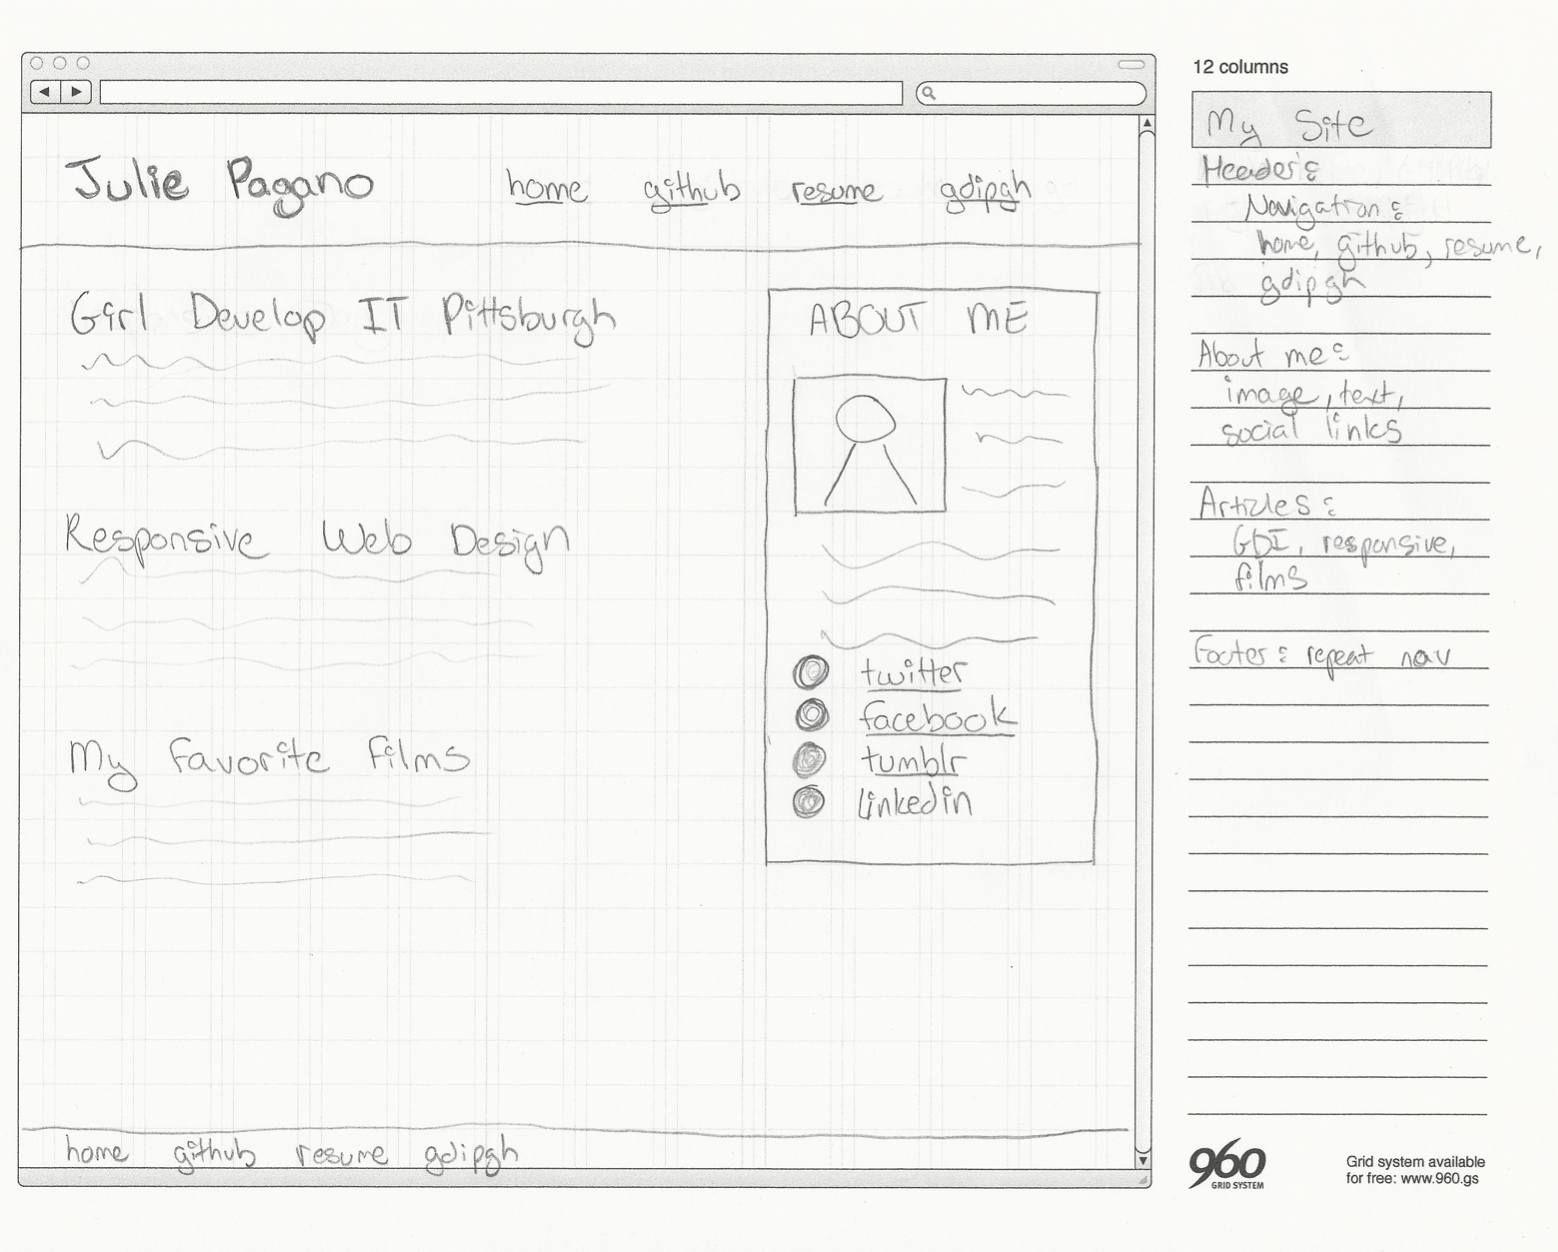 12 columns
Julie Pagano
home github resume gdipgh
Girl Develop IT Pittsburgh
Responsive Web Design
My favorite films
ABOUT ME
twitter
facebook
tumblr
linkedin
home github resume gdipgh
My Site
Header:
Navigation:
home, github, resume,
gdipgh
About me:
image, text,
social links
Articles:
GDI, responsive,
films
Footer: repeat nav
960
GRID SYSTEM
Grid system available
for free: www.960.gs